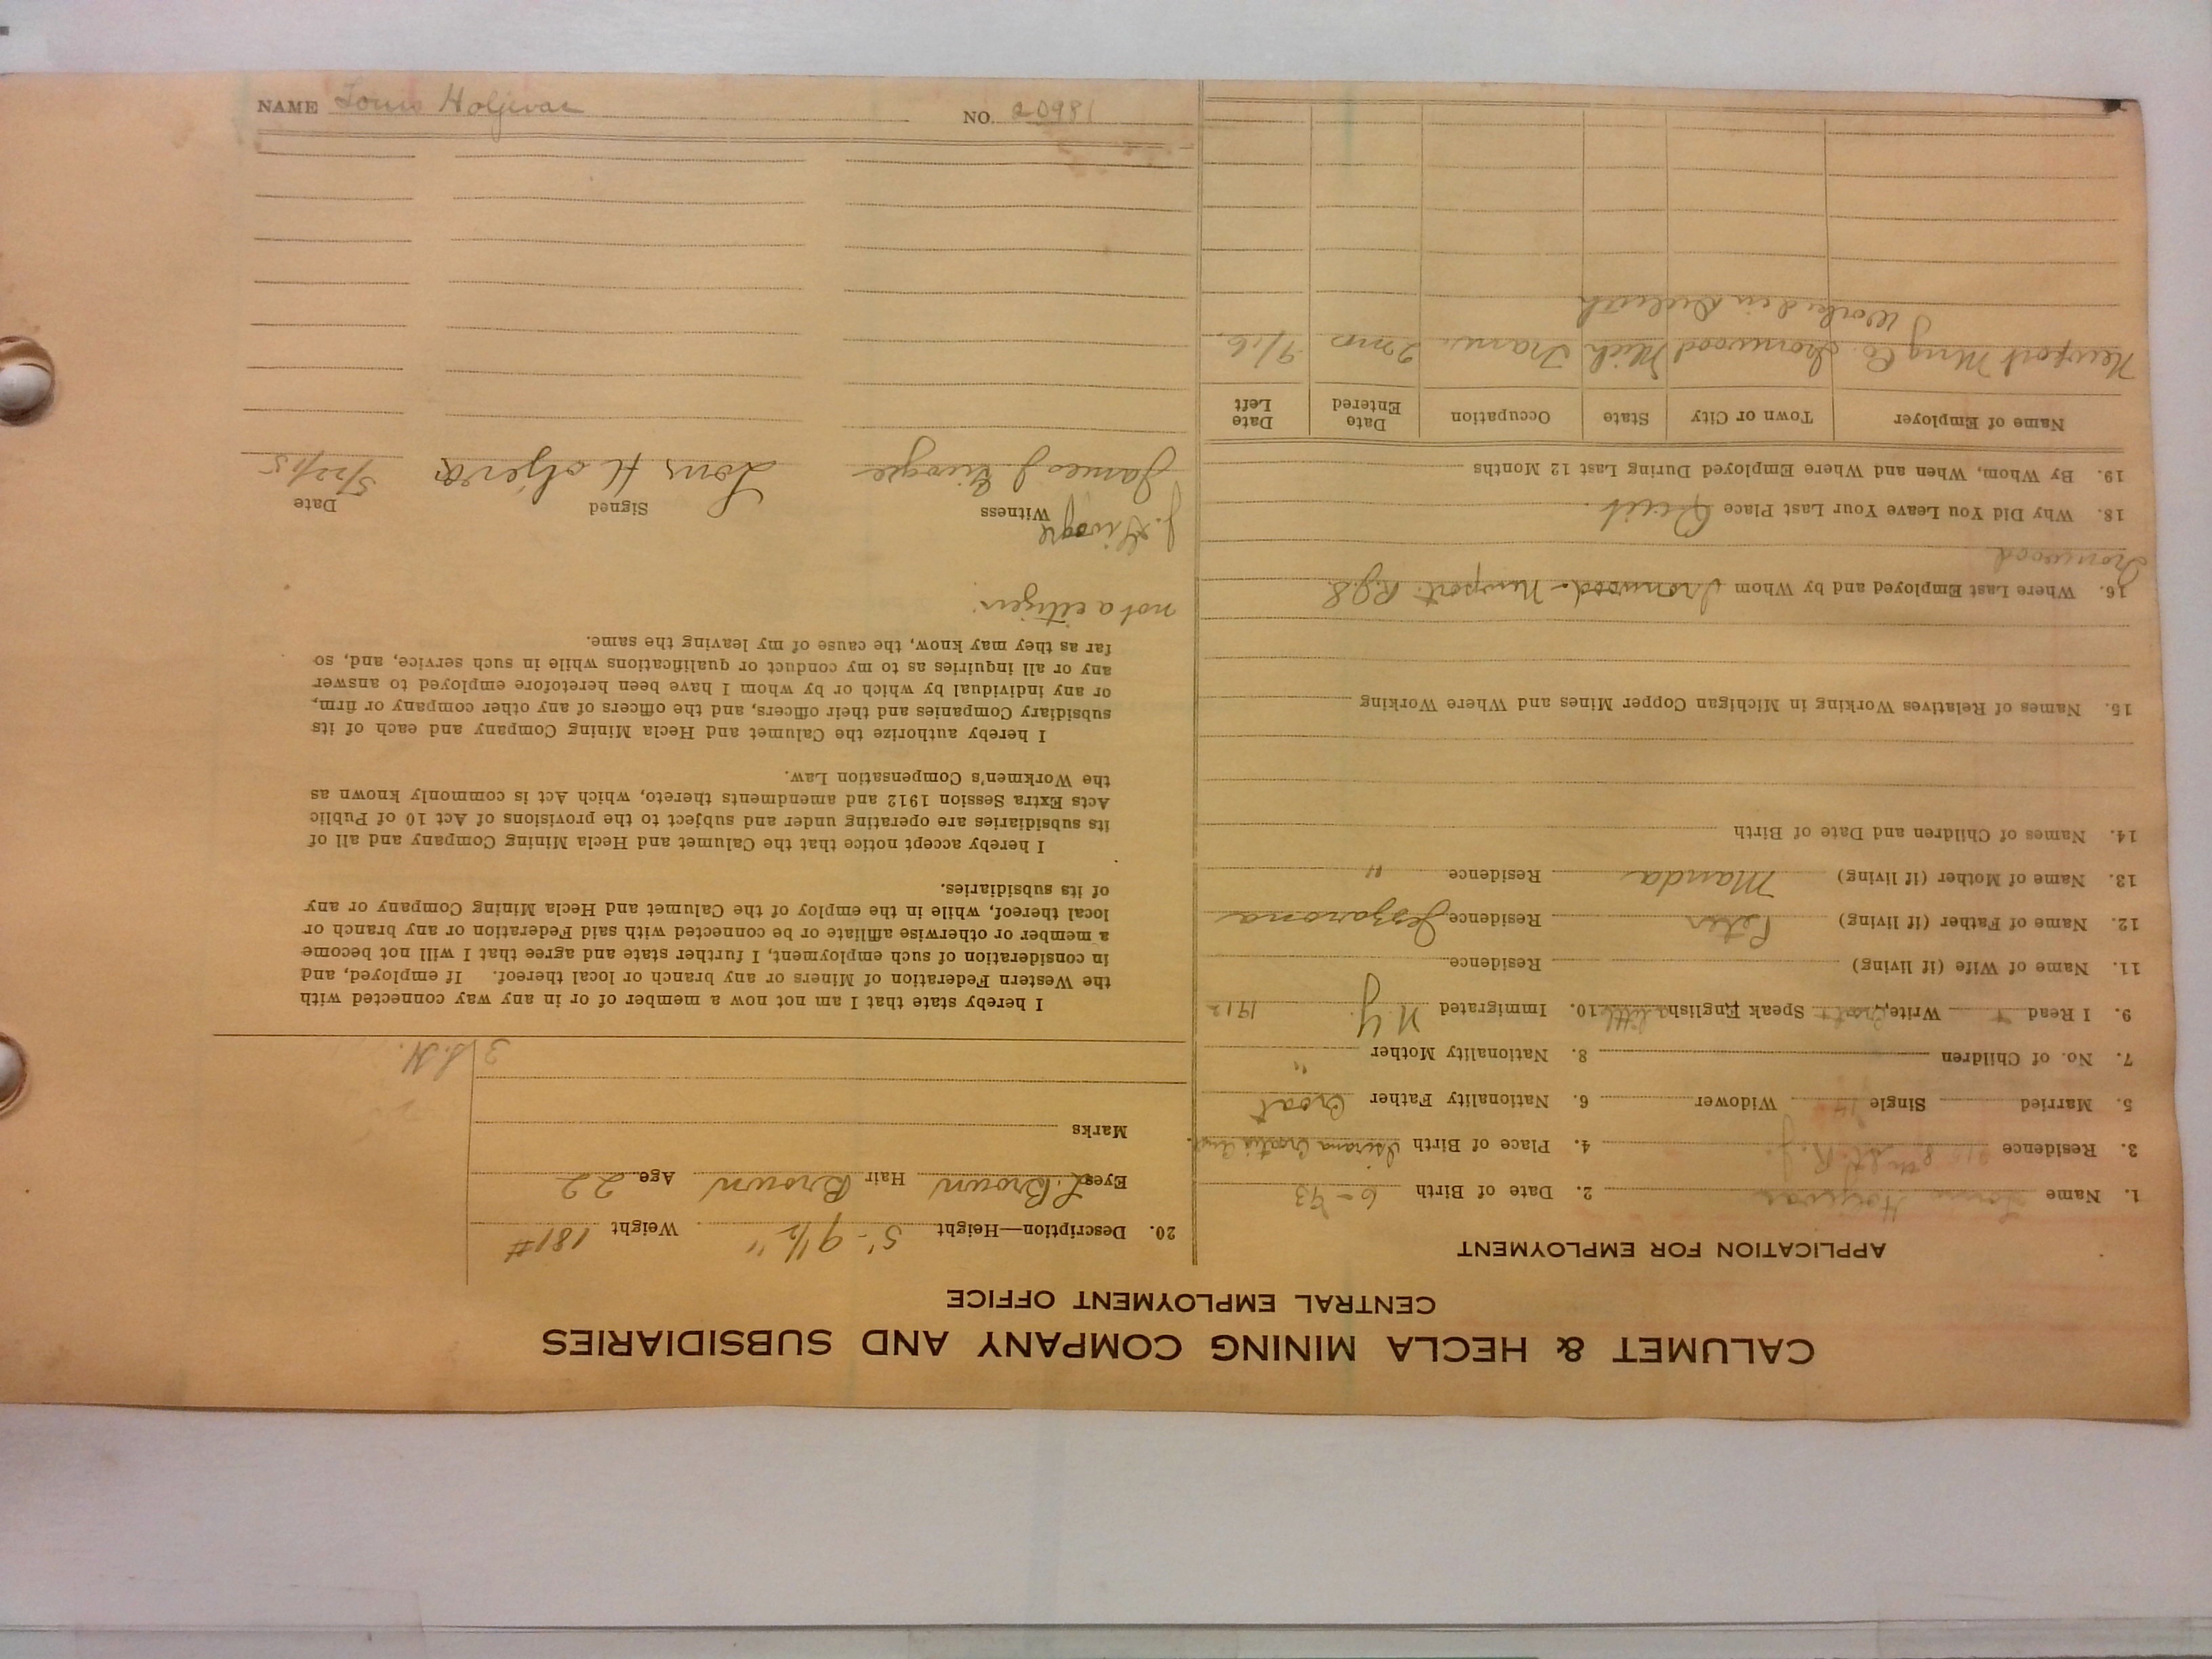 CALUMET & HECLA MINING COMPANY AND SUBSIDIARIES
CENTRAL EMPLOYMENT OFFICE
APPLICATION FOR EMPLOYMENT
1. Name Louis Holjevar 2. Date of Birth 6-93
3. Residence 8th St. R.J. 4. Place of Birth Croatia Aust.
5. Married Single Widower 6. Nationality Father Croat
7. No. of Children 8. Nationality Mother "
9. I Read Write, Croat Speak English a little 10. Immigrated N.Y. 1912
11. Name of Wife (if living) Residence
12. Name of Father (if living) Peter Residence
13. Name of Mother (if living) Manda Residence "
14. Names of Children and Date of Birth
15. Names of Relatives Working in Michigan Copper Mines and Where Working
16. Where Last Employed and by Whom Ironwood - Newport. R.J.S.
Ironwood
18. Why Did You Leave Your Last Place Quit.
19. By Whom, When and Where Employed During Last 12 Months
Name of Employer Town or City State Occupation Date Entered Date Left
Newport Mng Co. Ironwood Mich Tram 2 mo 9/16
J Worked in
20. Description—Height 5'-9½" Weight 181#
Eyes L. Brown Hair Brown Age 22
Marks
3 L.H.
I hereby state that I am not now a member of or in any way connected with
the Western Federation of Miners or any branch or local thereof. If employed, and
in consideration of such employment, I further state and agree that I will not become
a member or otherwise affiliate or be connected with said Federation or any branch or
local thereof, while in the employ of the Calumet and Hecla Mining Company or any
of its subsidiaries.
I hereby accept notice that the Calumet and Hecla Mining Company and all of
its subsidiaries are operating under and subject to the provisions of Act 10 of Public
Acts Extra Session 1912 and amendments thereto, which Act is commonly known as
the Workmen's Compensation Law.
I hereby authorize the Calumet and Hecla Mining Company and each of its
subsidiary Companies and their officers, and the officers of any other company or firm,
or any individual by which or by whom I have been heretofore employed to answer
any or all inquiries as to my conduct or qualifications while in such service, and, so
far as they may know, the cause of my leaving the same.
not a citizen.
Witness Signed Date
James J. Louis Holjevar 5/22/15
NAME Louis Holjevar NO. 20981